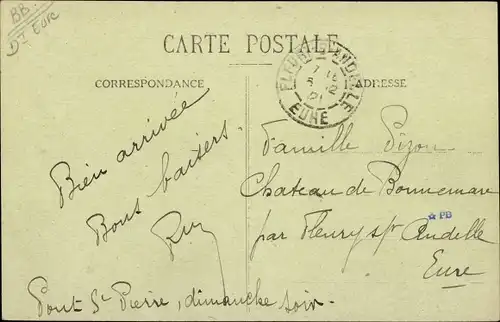 BB.
Dt Eure
CARTE POSTALE
CORRESPONDANCE
ADRESSE
FLEURY-S-ANDELLE
EURE
Bien arrivée
Bons baisers.
Famille
Chateau de Bonnemare
par Fleury s/ Andelle
Eure
☆ PB
Pont St Pierre, dimanche soir.